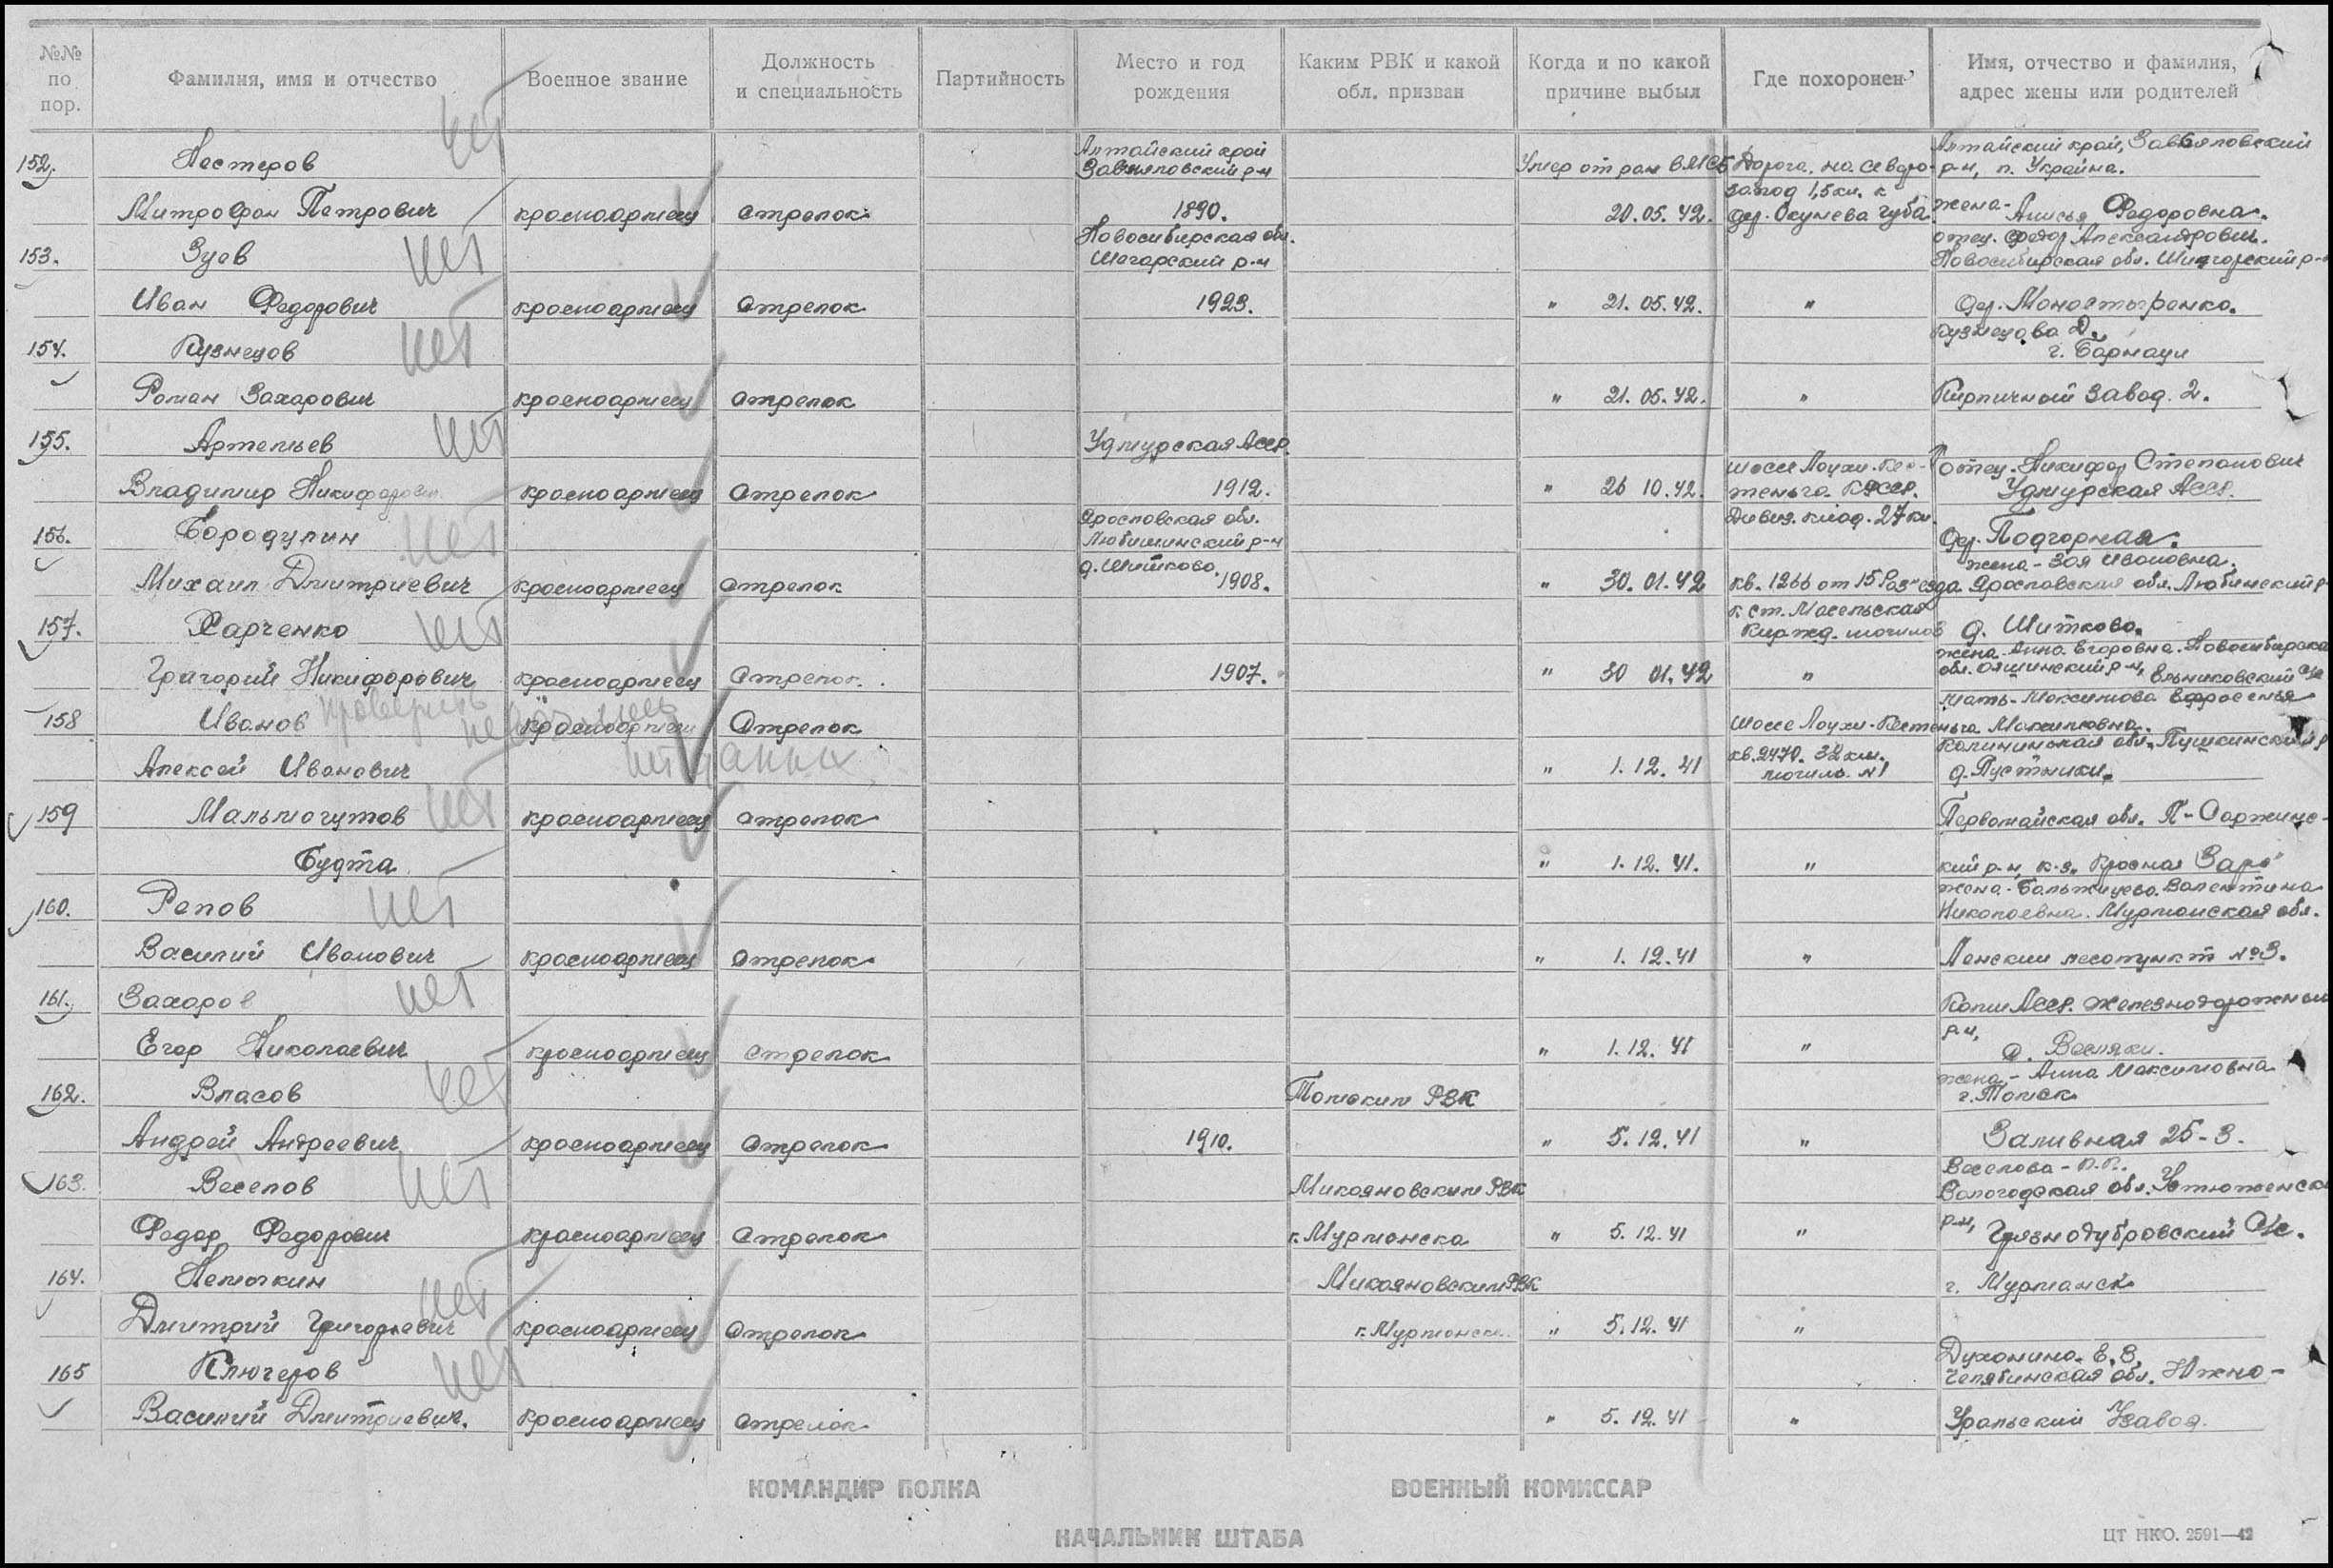 №№ по пор.
Фамилия, имя и отчество
Военное звание
Должность и специальность
Партийность
Место и год рождения
Каким РВК и какой обл. призван
Когда и по какой причине выбыл
Где похоронен
Имя, отчество и фамилия, адрес жены или родителей
152. Нестеров нет Алтайский край Завьяловский р-н Умер от ран в МСБ Дорога на северо- Алтайский край, Завьяловский р-н, п. Украина.
Митрофан Петрович красноармеец стрелок 1890. 20.05.42. запад 1,5 км. к дер. Окунева губа жена - Анисья Федоровна.
153. Зуев нет Новосибирская обл. Шегарский р-н отец. Федор Александрович. Новосибирская обл. Шегарский р-н
Иван Федорович красноармеец стрелок 1923. " 21.05.42. " дер. Монастыренко.
154. Кузнецов нет Кузнецова Д. г. Барнаул
Роман Захарович красноармеец стрелок " 21.05.42. " Кирпичный завод. 2.
155. Артемьев нет Удмурская Асср. отец. Никифор Степанович
Владимир Никифорович красноармеец стрелок 1912. " 26 10.42. шоссе Лоухи-Кес-теньга КФсср. Удмурская Асср.
156. Бородулин нет Ярославская обл. Любимский р-н Дивиз. клад. 27 км. дер. Подгорная.
Михаил Дмитриевич красноармеец стрелок д. Шитково. 1908. " 30.01.42 кв. 1266 от 15 Разъезда жена - Зоя Ивановна. Ярославская обл. Любимский р
157. Харченко нет к ст. Масельская Кир жд. могилов д. Шитково.
Григорий Никифорович красноармеец стрелок. 1907. " 30 01.42 " жена - Анна Егоровна. Новосибирская обл. Ояшинский р-н, Ельниковский с/с
158 Иванов проверить красноармеец стрелок шоссе Лоухи-Кестеньга мать - Максимова Ефросенья Максимовна.
Алексей Иванович нет данных " 1.12.41 кв. 2470. 32 км. могила №1 Калининская обл. Пушкинский р д. Пустынки.
159 Мальмогутов нет красноармеец стрелок Первомайская обл. П-Саржинс-
Будта " 1.12.41. " кий р-н, к-з "Красная Заря"
160. Репов нет жена - Валентина Николаевна. Мурманская обл.
Василий Иванович красноармеец стрелок " 1.12.41 " Ленский лесопункт №3.
161. Захаров нет Коми Асср. Железнодорожный р-н,
Егор Николаевич красноармеец стрелок " 1.12.41 " д. Весляки.
162. Власов нет Томским РВК жена - Анна Максимовна г. Томск
Андрей Андреевич красноармеец стрелок 1910. " 5.12.41 " Заливная 25-3.
163. Веселов нет Микояновским РВК Веселова - П.П. Вологодская обл. Устюженск
Федор Федорович красноармеец стрелок г. Мурманска " 5.12.41 " р-н, Грязнодубровский с/с.
164. Неточкин нет Микояновским РВК г. Мурманск
Дмитрий Григорьевич красноармеец стрелок г. Мурманска " 5.12.41 "
165 Ключеров нет Духонина. Е.З. Челябинская обл. Южно-
Василий Дмитриевич. красноармеец стрелок " 5.12.41 " Уральский завод.
КОМАНДИР ПОЛКА
ВОЕННЫЙ КОМИССАР
НАЧАЛЬНИК ШТАБА
ЦТ НКО. 2591—42